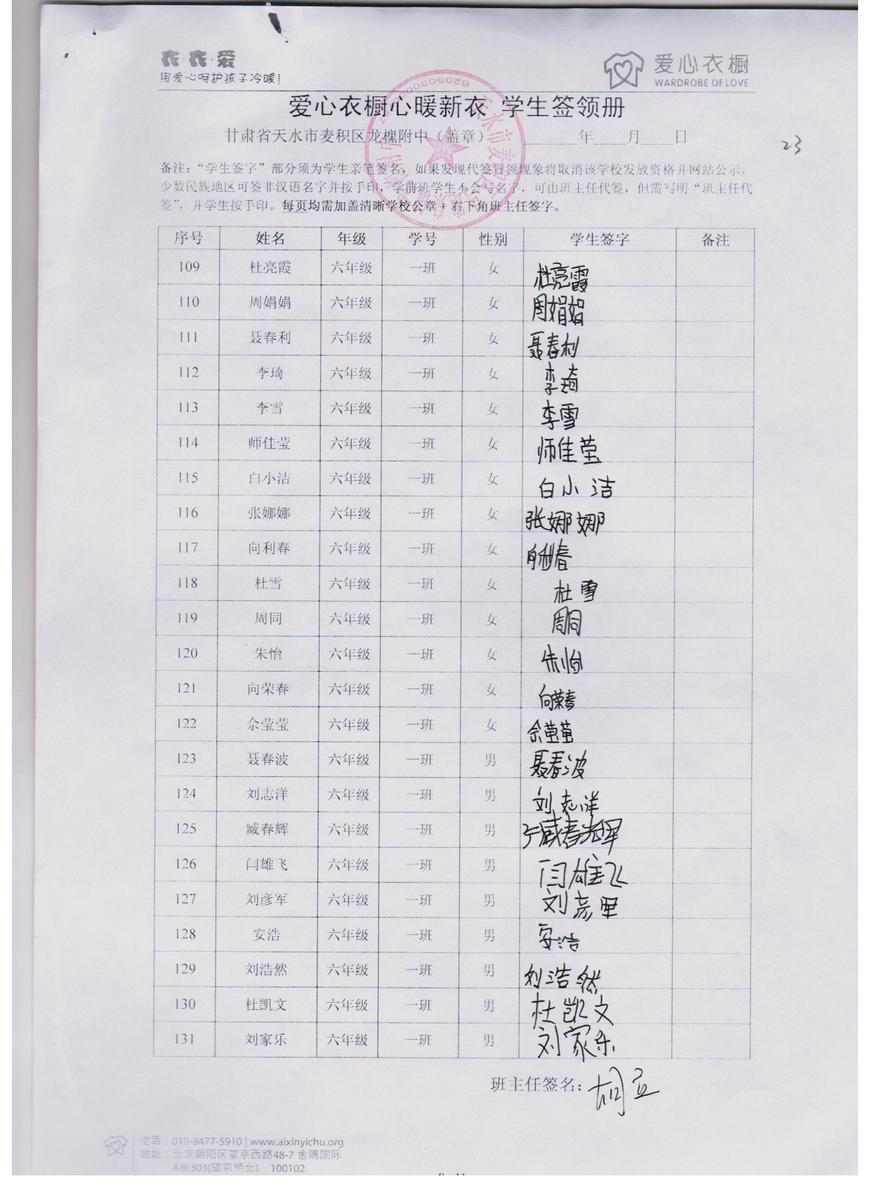 衣衣·爱
用爱心呵护孩子冷暖!
爱心衣橱
WARDROBE OF LOVE
爱心衣橱心暖新衣 学生签领册
甘肃省天水市麦积区龙槐附中（盖章） 年 月 日
23
备注："学生签字"部分须为学生亲笔签名，如果发现代签冒领现象将取消该学校发放资格并网站公示。
少数民族地区可签非汉语名字并按手印，学前班学生不会写名字，可由班主任代签，但需写明"班主任代
签"，并学生按手印。每页均需加盖清晰学校公章+右下角班主任签字。
序号 姓名 年级 学号 性别 学生签字 备注
109 杜亮霞 六年级 一班 女 杜亮霞
110 周娟娟 六年级 一班 女 周娟娟
111 聂春利 六年级 一班 女 聂春利
112 李琦 六年级 一班 女 李琦
113 李雪 六年级 一班 女 李雪
114 师佳莹 六年级 一班 女 师佳莹
115 白小洁 六年级 一班 女 白小洁
116 张娜娜 六年级 一班 女 张娜娜
117 向利春 六年级 一班 女 向利春
118 杜雪 六年级 一班 女 杜雪
119 周同 六年级 一班 女 周同
120 朱怡 六年级 一班 女 朱怡
121 向荣春 六年级 一班 女 向荣春
122 佘莹莹 六年级 一班 女 佘莹莹
123 聂春波 六年级 一班 男 聂春波
124 刘志洋 六年级 一班 男 刘志洋
125 臧春辉 六年级 一班 男 臧春辉
126 闫雄飞 六年级 一班 男 闫雄飞
127 刘彦军 六年级 一班 男 刘彦军
128 安浩 六年级 一班 男 安浩
129 刘浩然 六年级 一班 男 刘浩然
130 杜凯文 六年级 一班 男 杜凯文
131 刘家乐 六年级 一班 男 刘家乐
班主任签名：胡立
电话：010-8477-5910 | www.aixinyichu.org
地址：北京朝阳区望京西路48-7 金隅国际
A座303(望京桥北) · 100102